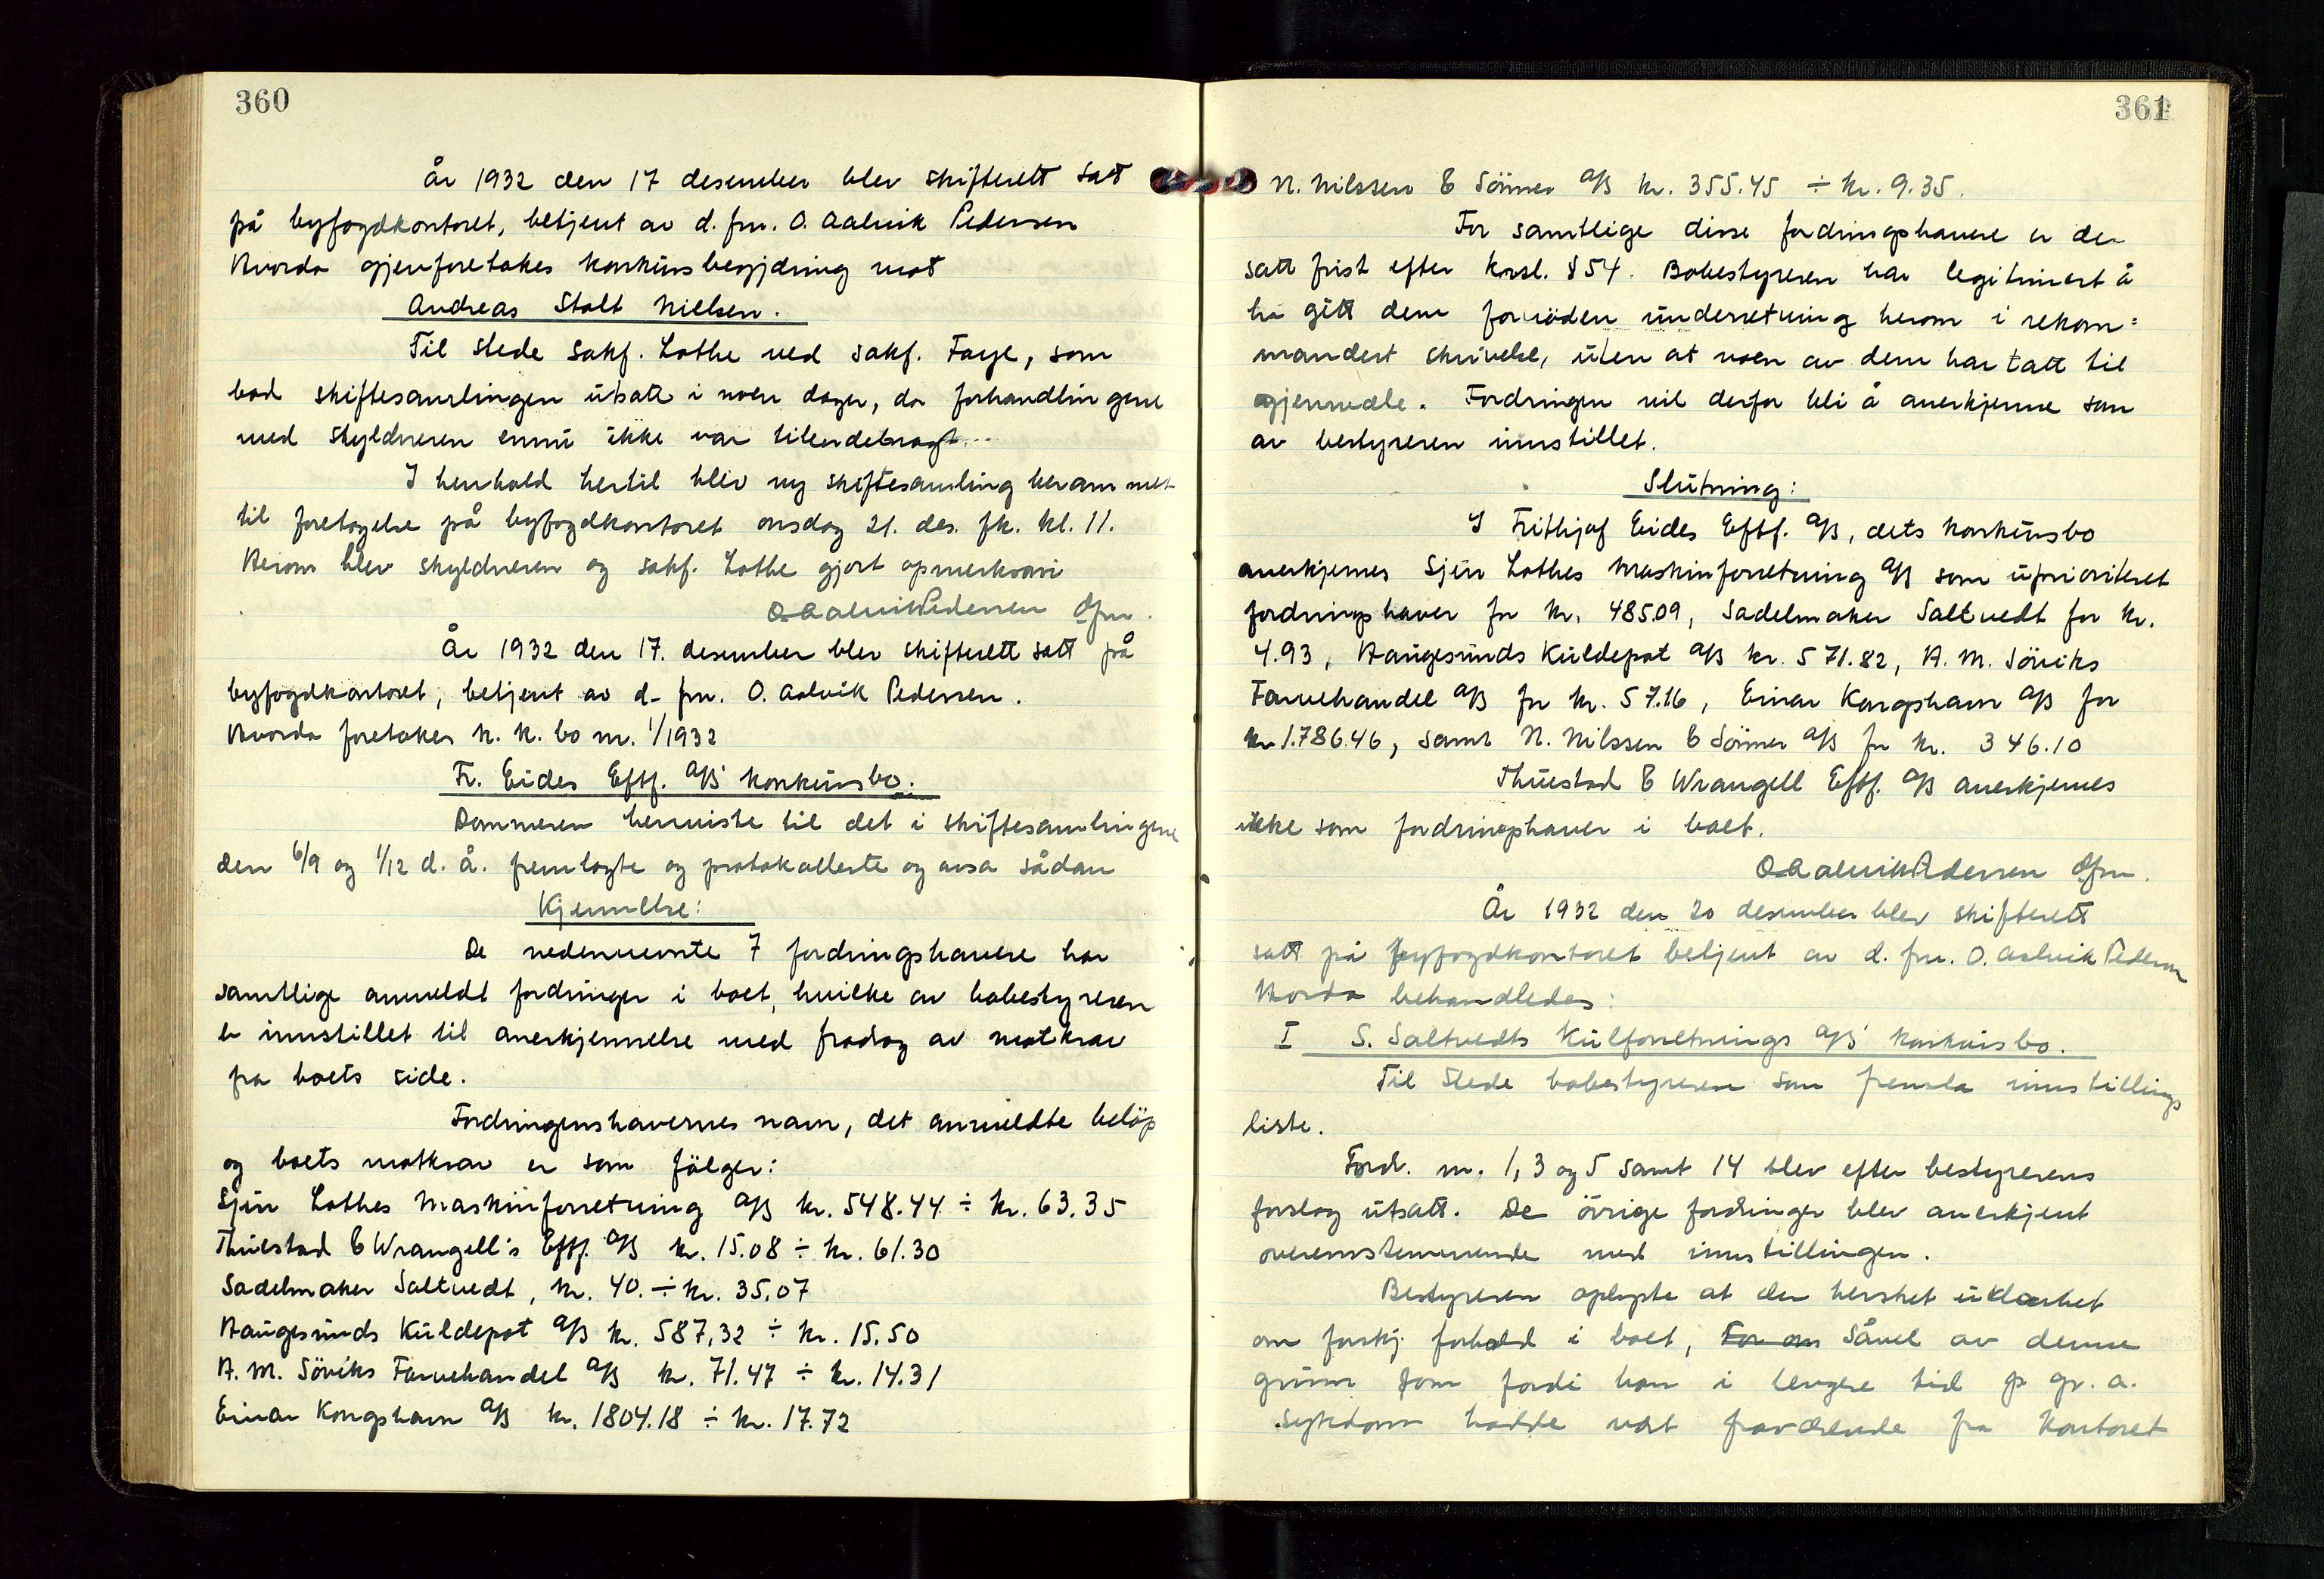 360
År 1932 den 17 desember blev skifterett satt
på byfogdkontoret, betjent av d. fm. O. Aalvik Pedersen
Hvorda gjenforetokes konkursbegjæring mot
Andreas Stolt Nielsen.
Til stede sakf. Lothe ved sakf. Faye, som
bad skiftesamlingen utsatt i noen dager, da forhandlingene
med skyldneren ennu ikke var tilendebragt.
I henhold hertil blev ny skiftesamling berammet
til foretagelse på byfogdkontoret onsdag 21. des. fk. kl. 11.
Herom blev skyldneren og sakf. Lothe gjort opmerksom
O Aalvik Pedersen dfm.
År 1932 den 17. desember blev skifterett satt på
byfogdkontoret, betjent av d. fm. O. Aalvik Pedersen.
Hvorda foretokes k. k. bo nr. 1/1932
Fr. Eides Eftf. A/S' konkursbo.
Dommeren henviste til det i skiftesamlingene
den 6/9 og 1/12 d. å. fremlagte og protokollerte og avsa sådan
Kjennelse:
De nedennevnte 7 fordringshavere har
samtlige anmeldt fordringer i boet, hvilke av bobestyreren
er innstillet til anerkjennelse med fradrag av motkrav
fra boets side.
Fordringenshavernes navn, det anmeldte beløp
og boets motkrav er som følger:
Sjur Lothes Maskinforretning A/S kr. 548.44 ÷ kr. 63.35
Thuestad & Wrangell's Eftf. A/S kr. 15.08 ÷ kr. 61.30
Sadelmaker Saltvedt, kr. 40. ÷ kr. 35.07
Haugesunds Kuldepot A/S kr. 587,32 ÷ kr. 15.50
H. M. Søviks Farvehandel A/S kr. 71.47 ÷ kr. 14.31
Einar Kongshavn A/S kr. 1804.18 ÷ kr. 17.72
361
N. Nilssen & Sønner A/S kr. 355.45 ÷ kr. 9.35.
For samtlige disse fordringshavere er der
satt frist efter krsl. § 54. Bobestyreren har legitimert å
ha gitt dem fornøden underretning herom i rekom=
mandert skrivelse, uten at noen av dem har tatt til
gjenmæle. Fordringen vil derfor bli å anerkjenne som
av bestyreren innstillet.
Slutning:
I Frithjof Eides Eftf. A/S, dets konkursbo
anerkjennes Sjur Lothes Maskinforretning A/S som uprioriteret
fordringshaver for kr. 485.09, Sadelmaker Saltvedt for kr.
4.93, Haugesunds Kuldepot A/S kr. 571.82, H. M. Søviks
Farvehandel A/S for kr. 57.16, Einar Kongshavn A/S for
kr. 1.786.46, samt N. Nilssen & Sønner A/S for kr. 346.10
Thuestad & Wrangell Eftf. A/S anerkjennes
ikke som fordringshaver i boet.
O Aalvik Pedersen dfm.
År 1932 den 20 desember blev skifterett
satt på byfogdkontoret betjent av d. fm. O. Aalvik Pedersen
Hvorda behandledes:
I S. Saltvedts Kulforretnings A/S' konkursbo.
Til stede bobestyreren som fremla innstillings
liste.
Fordr. nr. 1, 3 og 5 samt 14 blev efter bestyrerens
forslag utsatt. De øvrige fordringer blev anerkjent
overensstemmende med innstillingen.
Bestyreren oplyste at der hersket uklarhet
om forskj. forhold i boet, For om Såvel av denne
grunn som fordi han i lengere tid p gr. a.
sykdom hadde vært fraværende fra kontoret